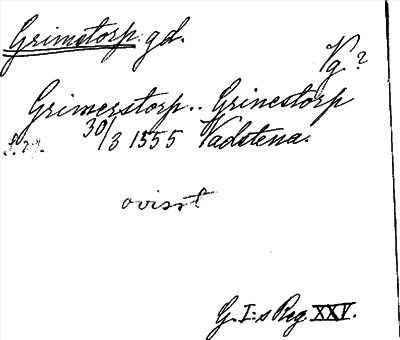 Grimstorp. gd.
Vg ?
Grimerstorp.. Grinestorp
30/3 1555 Vadstena.
ovisst
G. I:s Reg. XXV.